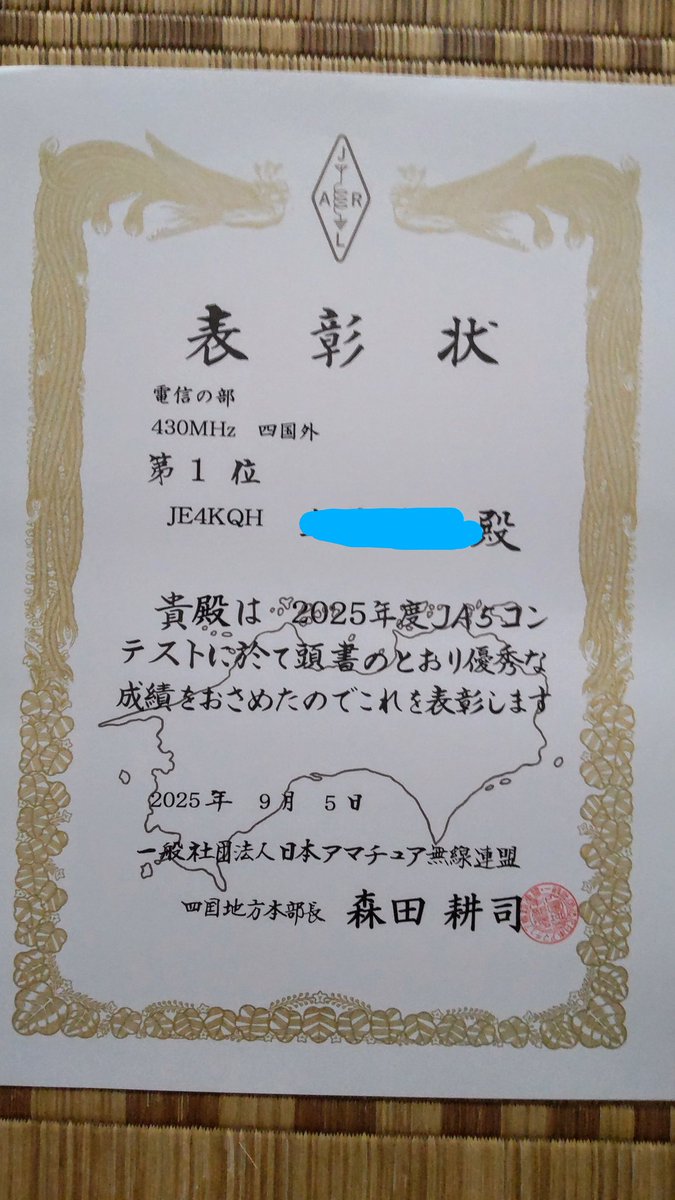 J
A R
L
表彰状
電信の部
430MHz 四国外
第1位
JE4KQH 殿
貴殿は 2025年度JA5コン
テストに於て頭書のとおり優秀な
成績をおさめたのでこれを表彰します
2025年 9月 5日
一般社団法人日本アマチュア無線連盟
四国地方本部長 森田 耕司